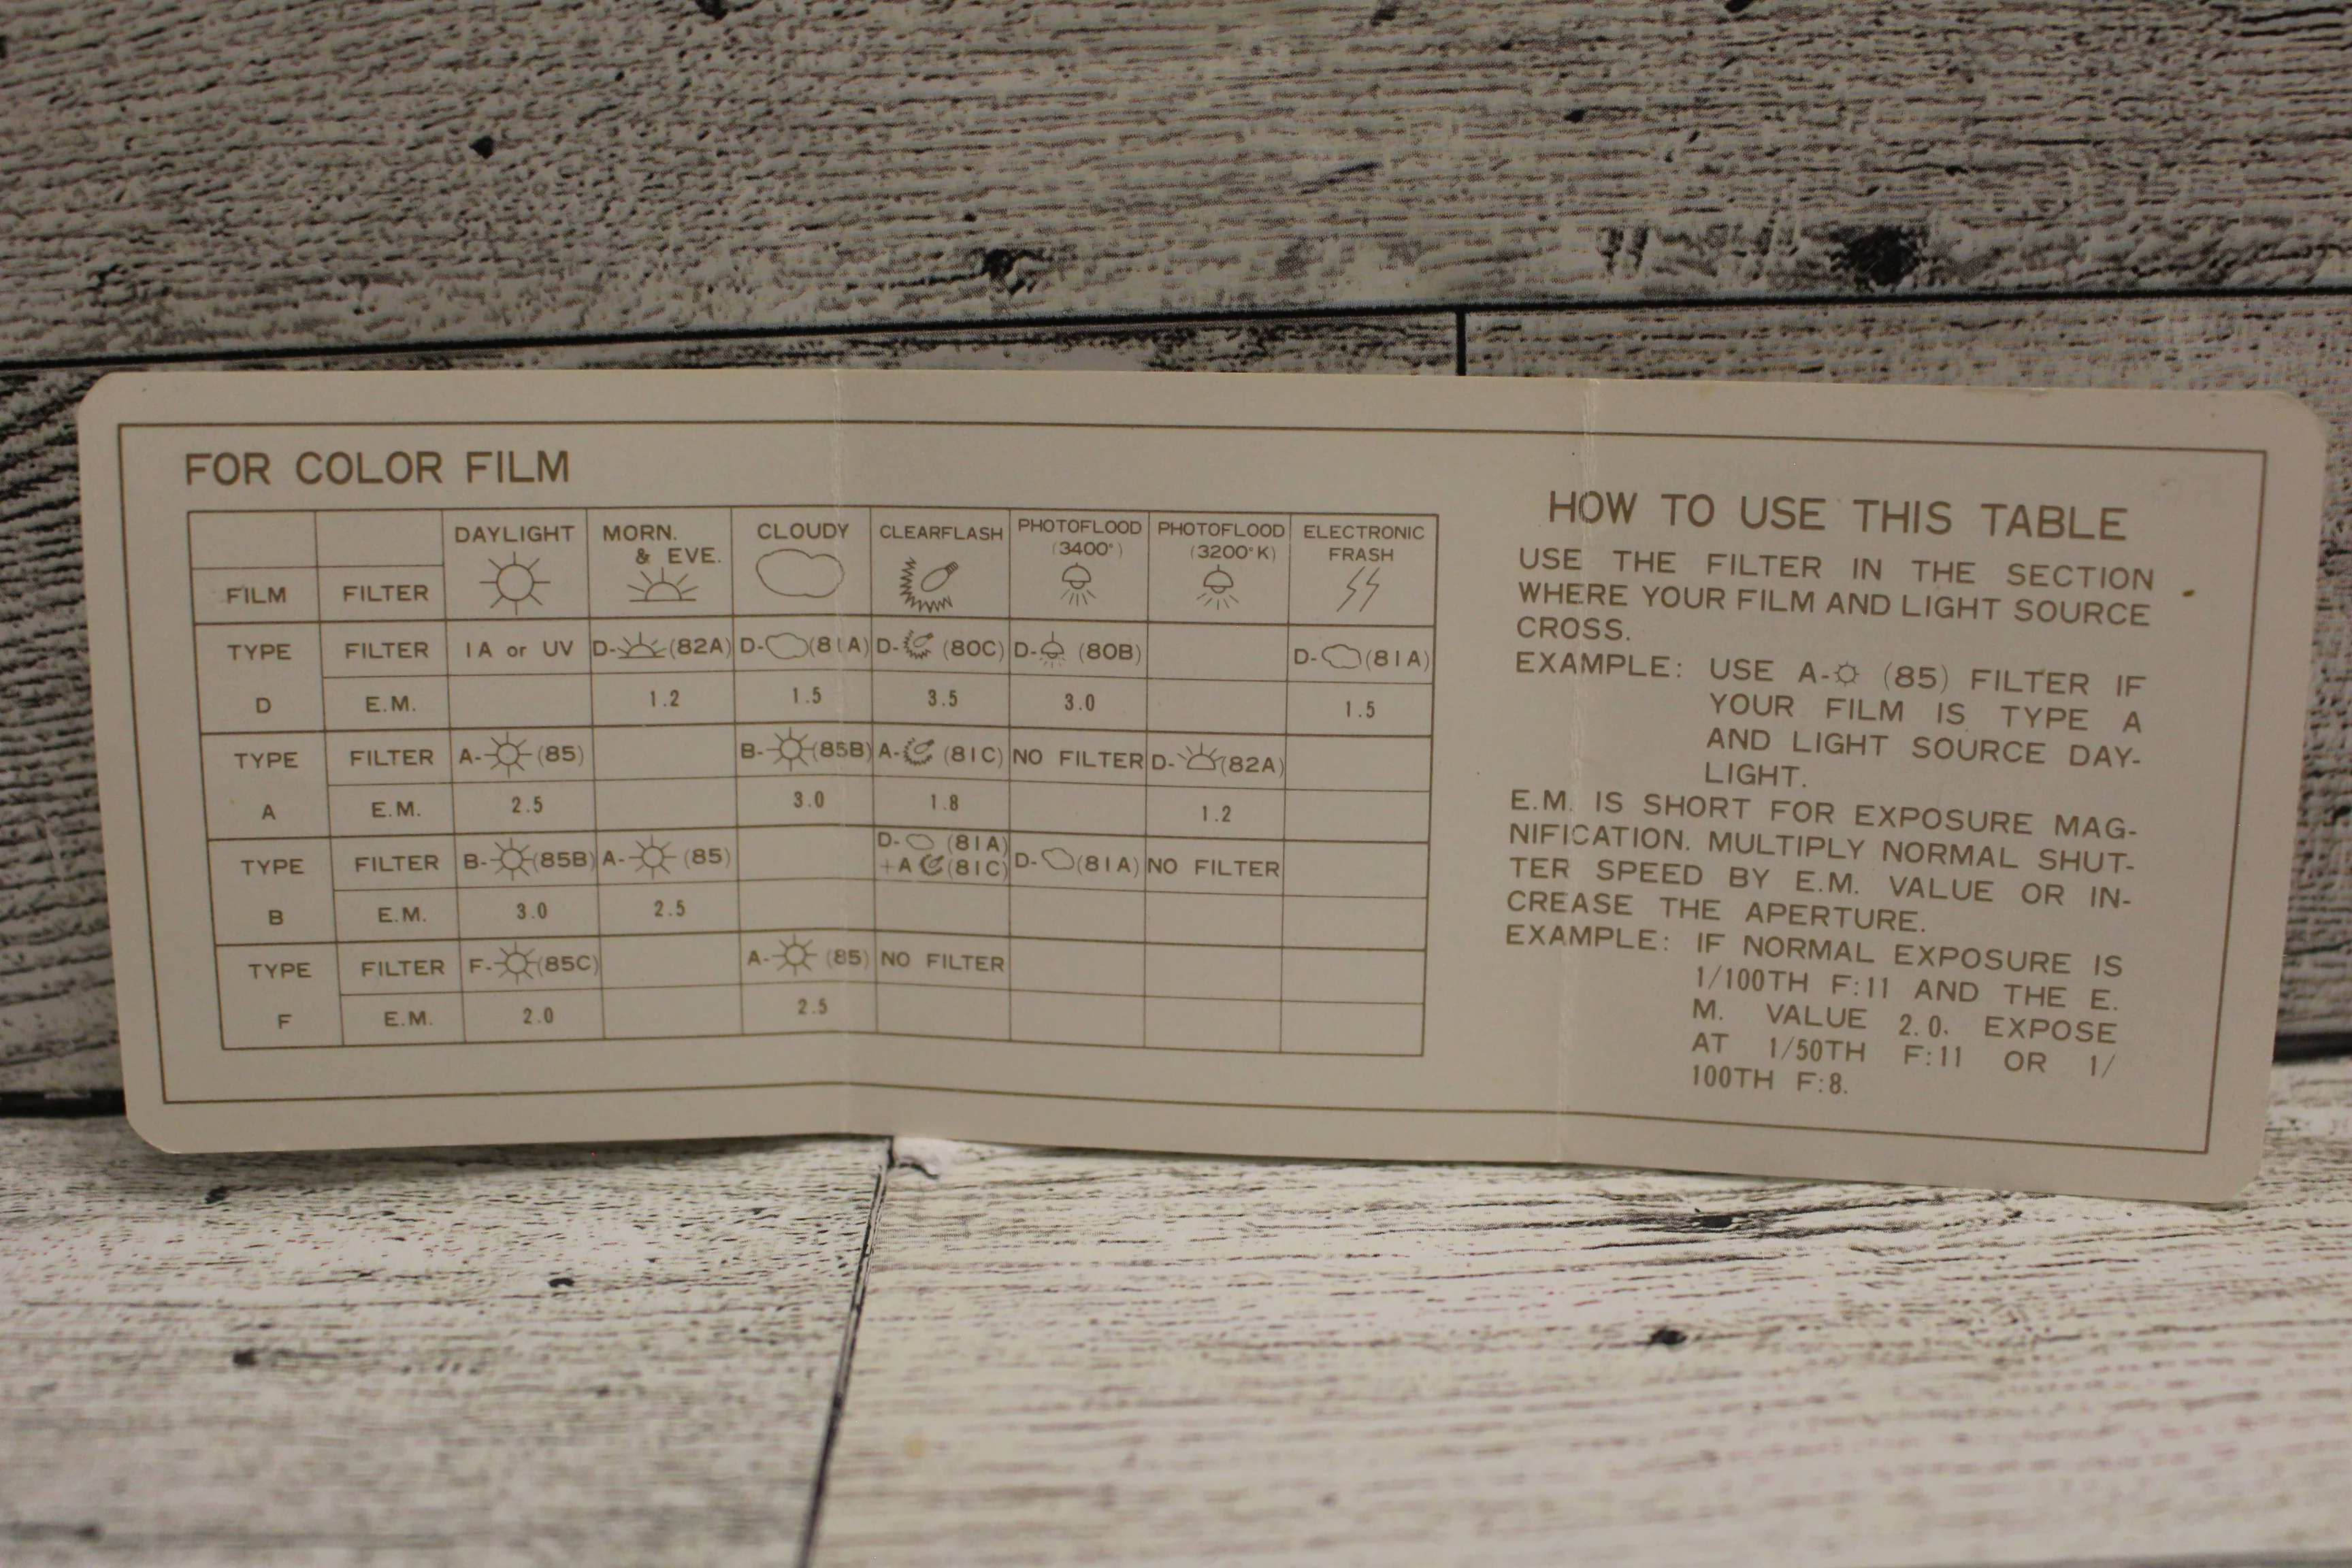 FOR COLOR FILM
DAYLIGHT MORN. & EVE. CLOUDY CLEARFLASH PHOTOFLOOD (3400°) PHOTOFLOOD (3200°K) ELECTRONIC FRASH
FILM FILTER
TYPE D FILTER 1A or UV D-(82A) D-(81A) D-(80C) D-(80B) D-(81A)
E.M. 1.2 1.5 3.5 3.0 1.5
TYPE A FILTER A-(85) B-(85B) A-(81C) NO FILTER D-(82A)
E.M. 2.5 3.0 1.8 1.2
TYPE B FILTER B-(85B) A-(85) D-(81A) +A(81C) D-(81A) NO FILTER
E.M. 3.0 2.5
TYPE F FILTER F-(85C) A-(85) NO FILTER
E.M. 2.0 2.5
HOW TO USE THIS TABLE
USE THE FILTER IN THE SECTION
WHERE YOUR FILM AND LIGHT SOURCE
CROSS.
EXAMPLE: USE A-(85) FILTER IF
YOUR FILM IS TYPE A
AND LIGHT SOURCE DAY-
LIGHT.
E.M. IS SHORT FOR EXPOSURE MAG-
NIFICATION. MULTIPLY NORMAL SHUT-
TER SPEED BY E.M. VALUE OR IN-
CREASE THE APERTURE.
EXAMPLE: IF NORMAL EXPOSURE IS
1/100TH F:11 AND THE E.
M. VALUE 2.0. EXPOSE
AT 1/50TH F:11 OR 1/
100TH F:8.